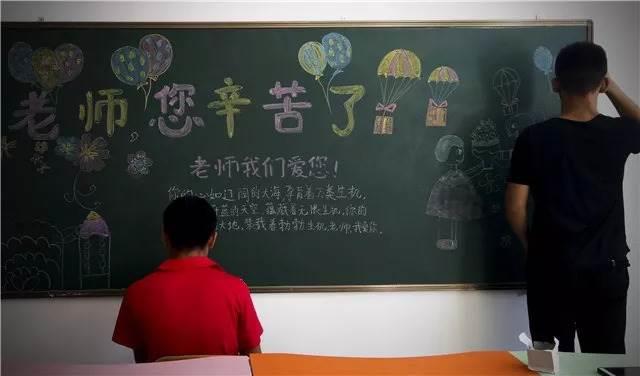 老师,您辛苦了
老师我们爱您!
你的心如辽阔的大海,孕育着万类生机,
蓝的天空,蕴藏着无限生机,你的
大地,荣载着勃勃生机,老师,我爱你.